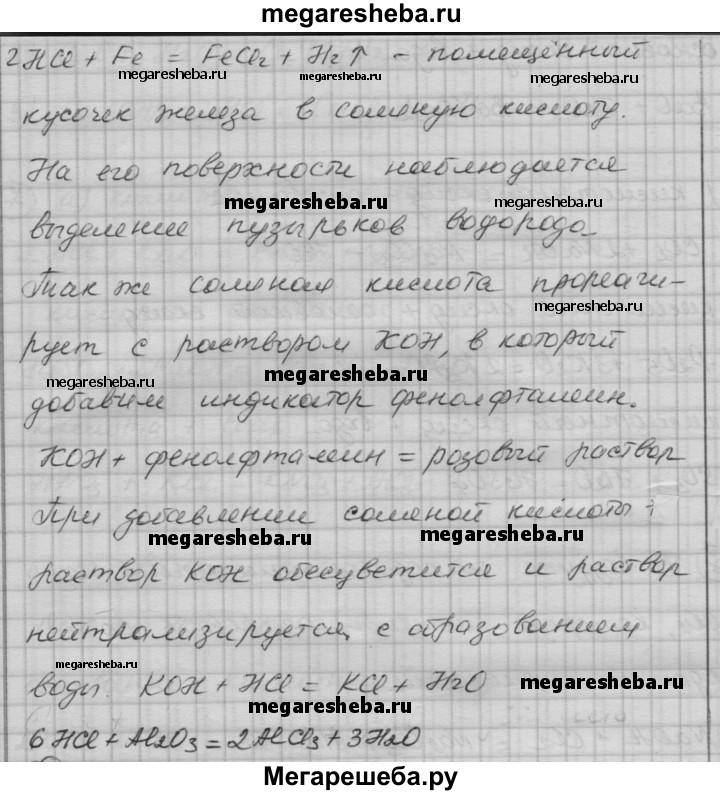 megaresheba.ru
2HCl + Fe = FeCl2 + H2↑ - помещённый
megaresheba.ru megaresheba.ru megaresheba.ru
кусочек железа в соляную кислоту.
На его поверхности наблюдается
megaresheba.ru megaresheba.ru
выделение пузырьков водорода
Так же соляная кислота прореаги-
megaresheba.ru
рует с раствором KOH, в который
megaresheba.ru megaresheba.ru
добавим индикатор фенолфталеин.
KOH + фенолфталеин = розовый раствор
При добавлении соляной кислоты
megaresheba.ru megaresheba.ru
раствор KOH обесцветится и раствор
нейтрализируется, с образованием
megaresheba.ru
воды. KOH + HCl = KCl + H2O megaresheba.ru
6HCl + Al2O3 = 2AlCl3 + 3H2O
Мегарешеба.ру